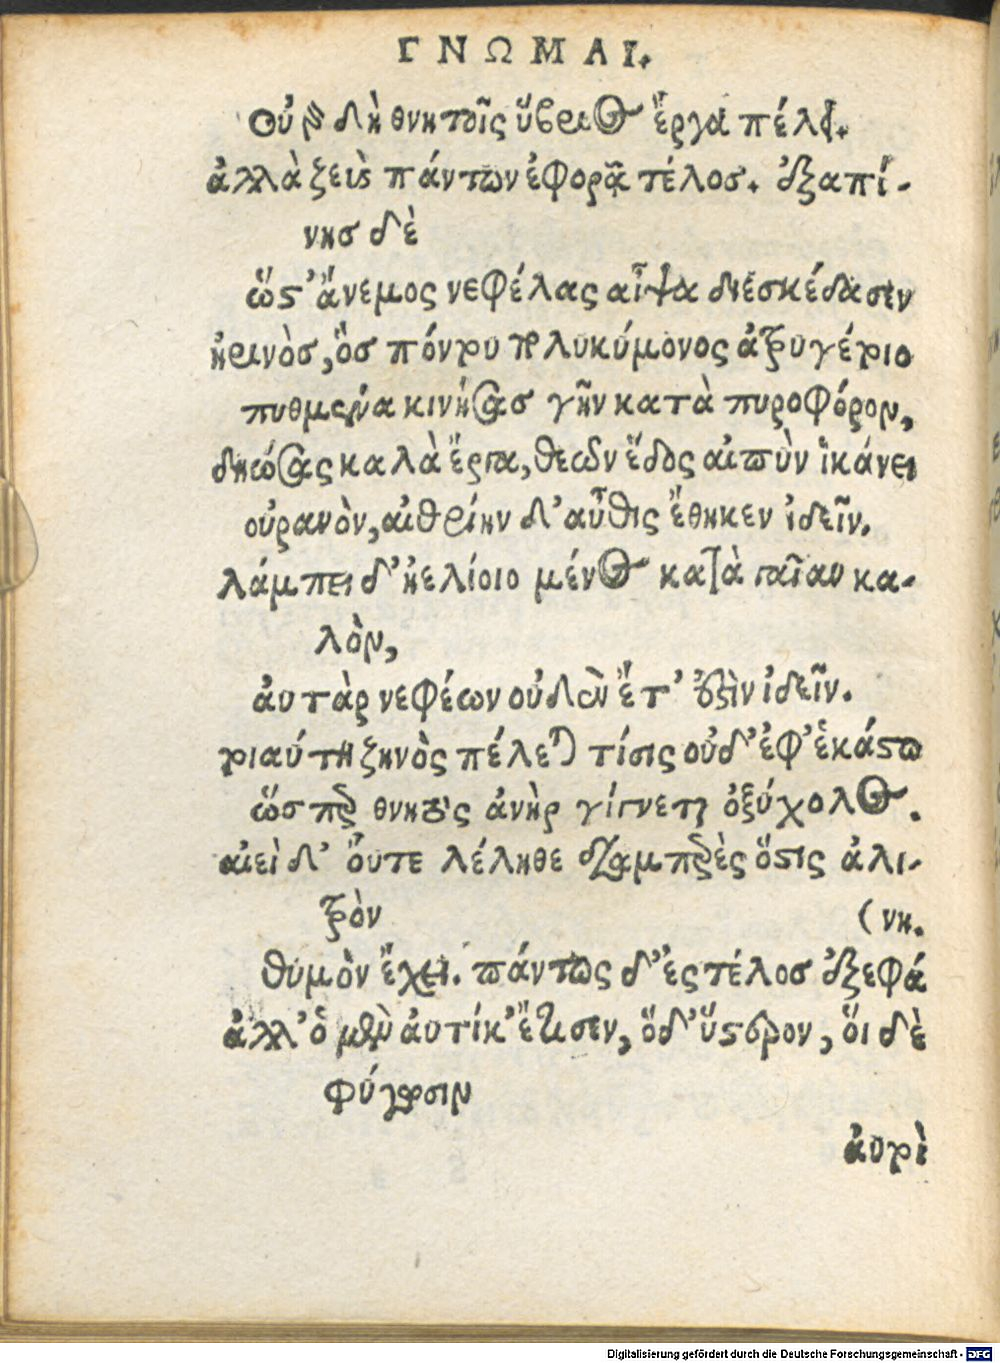 ΓΝΩΜΑΙ.
Οὐ γὰρ δὴ θνητοῖς ὕβριος ἔργα πέλει.
ἀλλὰ ζεὺς πάντων ἐφορᾷ τέλος. ἐξαπί-
νης δὲ
ὥστ' ἄνεμος νεφέλας αἶψα διεσκέδασεν
ἠρινὸς, ὃς πόντου πολυκύμονος ἀτρυγέτοιο
πυθμένα κινήσας γῆν κατὰ πυροφόρον,
δηώσας καλὰ ἔργα, θεῶν ἕδος αἰπὺν ἱκάνει
οὐρανὸν, αἰθρίην δ' αὖθις ἔθηκεν ἰδεῖν.
λάμπει δ' ἠελίοιο μένος κατὰ γαῖαν κα-
λὸν,
ἀυτὰρ νεφέων οὐδὲν ἔτ' ἐστὶν ἰδεῖν.
τοιαύτη ζηνὸς πέλεται τίσις οὐδ' ἐφ' ἑκάστῳ
ὥσπερ θνητὸς ἀνὴρ γίγνεται ὀξύχολος.
αἰεὶ δ' οὔτε λέληθε διαμπερὲς ὅστις ἀλι-
τρὸν
(νη.
θυμὸν ἔχει. πάντως δ' ἐς τέλος ἐξεφά
ἀλλ' ὁ μὲν ἀυτίκ' ἔτισεν, ὅδ' ὕστερον, ὅι δὲ
φύγωσιν
ἀυτοὶ
Digitalisierung gefördert durch die Deutsche Forschungsgemeinschaft - DFG